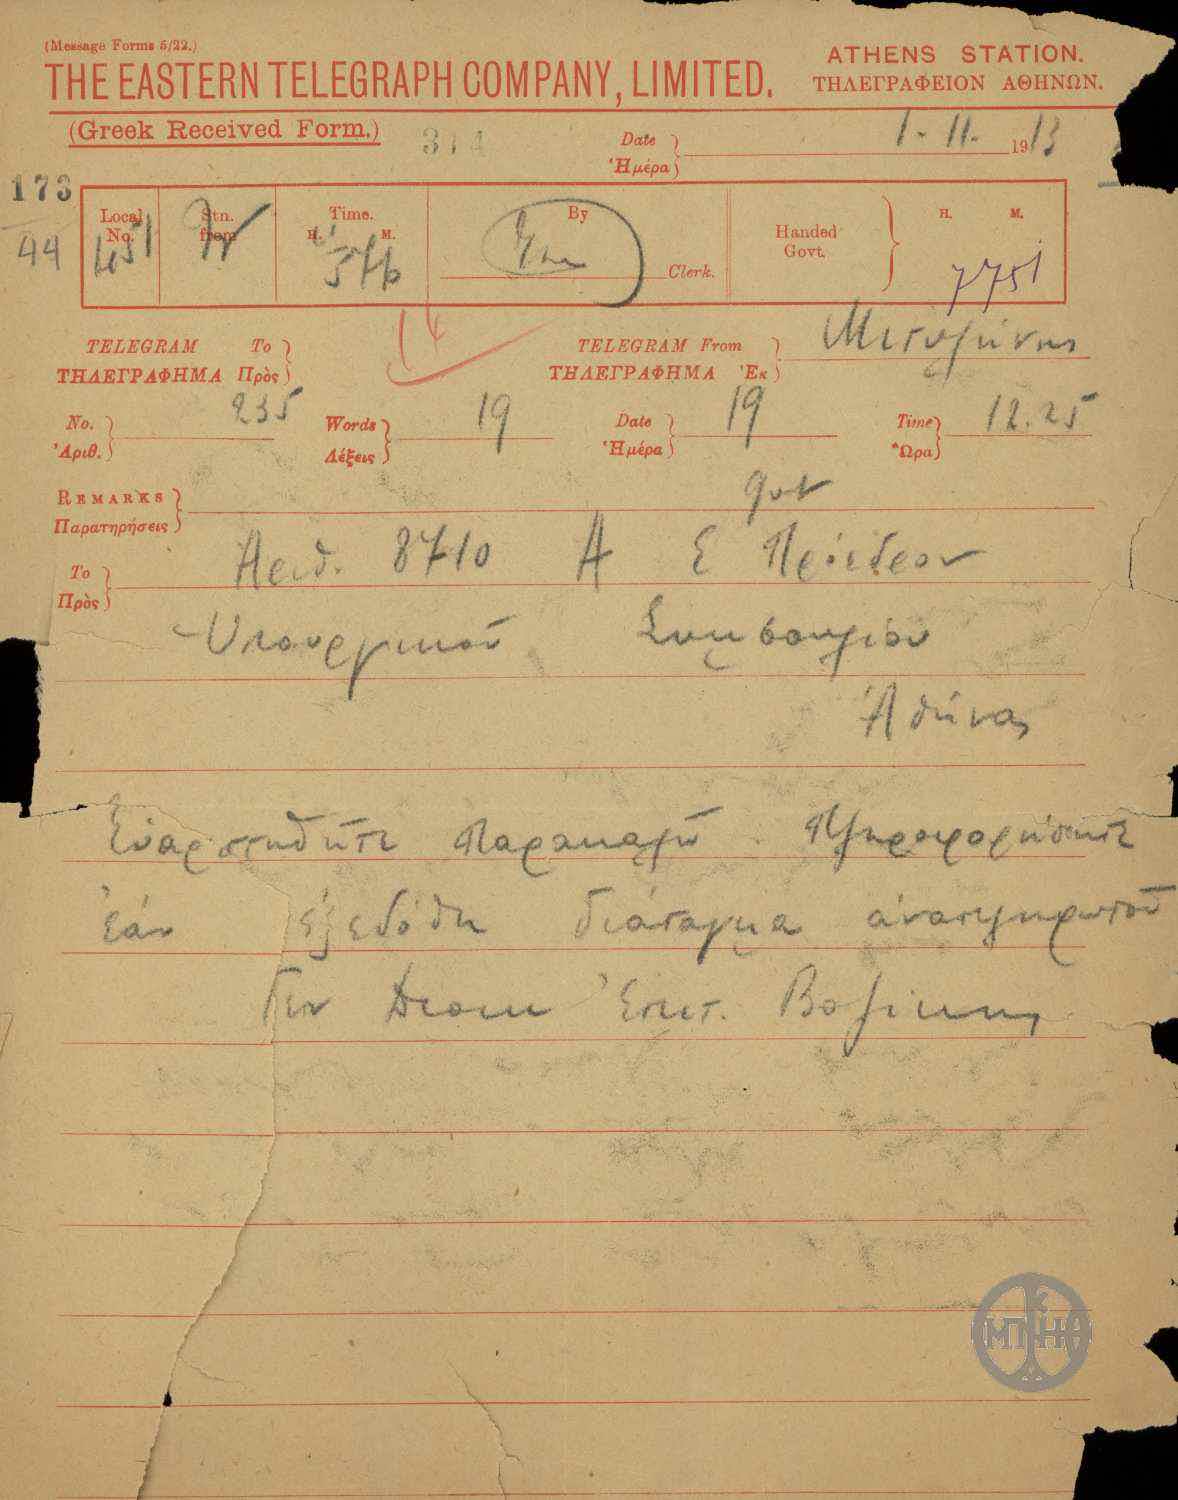 (Message Forms 5/22.)
THE EASTERN TELEGRAPH COMPANY, LIMITED.
ATHENS STATION.
ΤΗΛΕΓΡΑΦΕΙΟΝ ΑΘΗΝΩΝ.
(Greek Received Form.)
314
Date
Ἡμέρα
1-11-1913
173
44
Local No. 451
Stn. from
Time. H. M.
By
Clerk.
Handed Govt.
H. M.
775
14
TELEGRAM To
ΤΗΛΕΓΡΑΦΗΜΑ Πρὸς
TELEGRAM From Μιτυλήνης
ΤΗΛΕΓΡΑΦΗΜΑ Ἐκ
No. 235
Ἀριθ.
Words 19
Λέξεις
Date 19
Ἡμέρα
Time 12.25
Ὥρα
REMARKS gvt
Παρατηρήσεις
To
Πρὸς
Αριθ. 8710 Α Ε Πρόεδρον
Υπουργικού Συμβουλίου
Αθήνας
Εὐαρεστηθῆτε παρακαλῶ πληροφορήσητε
ἐάν ἐξεδόθη διάταγμα ἀναπληρωτοῦ
Γεν Διοικ Ἐπιτ.
ΜΠΚΗ